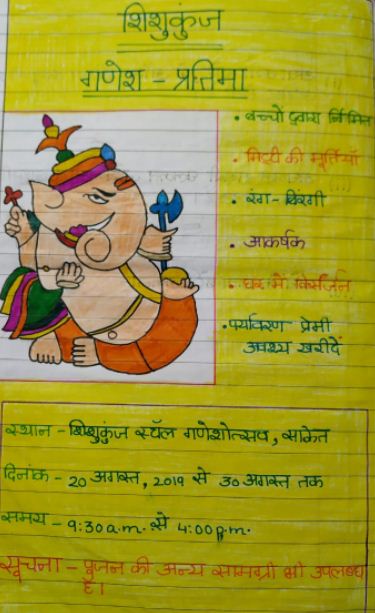 शिशुकुंज
गणेश - प्रतिमा
• बच्चों द्वारा निर्मित
• मिट्टी की मूर्तियाँ
• रंग - बिरंगी
• आकर्षक
• घर में विसर्जन
• पर्यावरण प्रेमी
अवश्य खरीदें
स्थान - शिशुकुंज स्टॉल गणेशोत्सव, साकेत
दिनांक - 20 अगस्त, 2019 से 30 अगस्त तक
समय - 9:30 a.m. से 4:00 p.m.
सूचना - पूजन की अन्य सामग्री भी उपलब्ध
है।